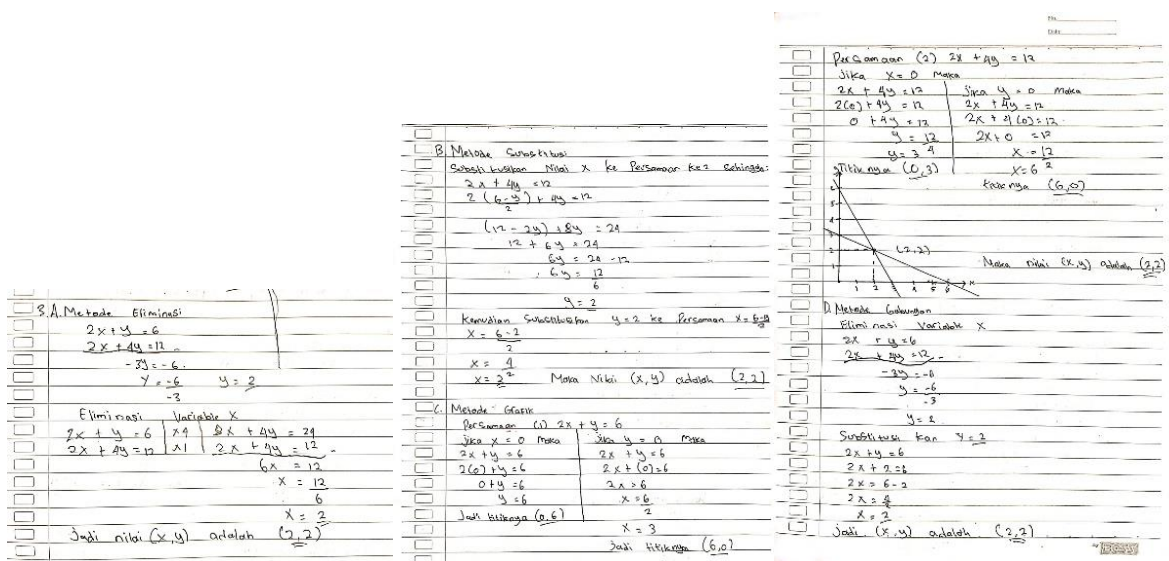 3. A. Metode Eliminasi
2x + y = 6
2x + 4y = 12 -
-3y = -6
y = -6 y = 2
-3
Eliminasi Variable X
2x + y = 6 | x4 | 8x + 4y = 24
2x + 4y = 12 | x1 | 2x + 4y = 12 -
6x = 12
x = 12
6
x = 2
Jadi nilai (x,y) adalah (2,2)
B. Metode Substitusi
Substitusikan Nilai x ke Persamaan ke 2 Sehingga:
2x + 4y = 12
2 (6-y) + 4y = 12
2
(12 - 2y) + 8y = 24
12 + 6y = 24
6y = 24 - 12
6y = 12
6
y = 2
Kemudian Substitusikan y = 2 ke Persamaan x = 6-y
2
x = 6-2
2
x = 4
2
x = 2 Maka Nilai (x,y) adalah (2,2)
C. Metode Grafik
Persamaan (1) 2x + y = 6
Jika x = 0 Maka | Jika y = 0 Maka
2x + y = 6 | 2x + y = 6
2(0) + y = 6 | 2x + (0) = 6
0 + y = 6 | 2x = 6
y = 6 | x = 6
2
Jadi titiknya (0,6)
x = 3
Jadi titiknya (6,0)
No.
Date
Persamaan (2) 2x + 4y = 12
Jika x = 0 Maka
2x + 4y = 12 | Jika y = 0 Maka
2(0) + 4y = 12 | 2x + 4y = 12
0 + 4y = 12 | 2x + 4(0) = 12
y = 12 | 2x + 0 = 12
4
y = 3 | x = 12
2
Titiknya (0,3) | x = 6
titiknya (6,0)
y
6
5
4
3
2
1
(2,2)
1 2 3 4 5 6 x
Maka nilai (x,y) adalah (2,2)
D. Metode Gabungan
Eliminasi Variable X
2x + y = 6
2x + 4y = 12 -
-3y = -6
y = -6
-3
y = 2
Substitusi kan y = 2
2x + y = 6
2x + 2 = 6
2x = 6 - 2
2x = 4
2
x = 2
Jadi (x,y) adalah (2,2)